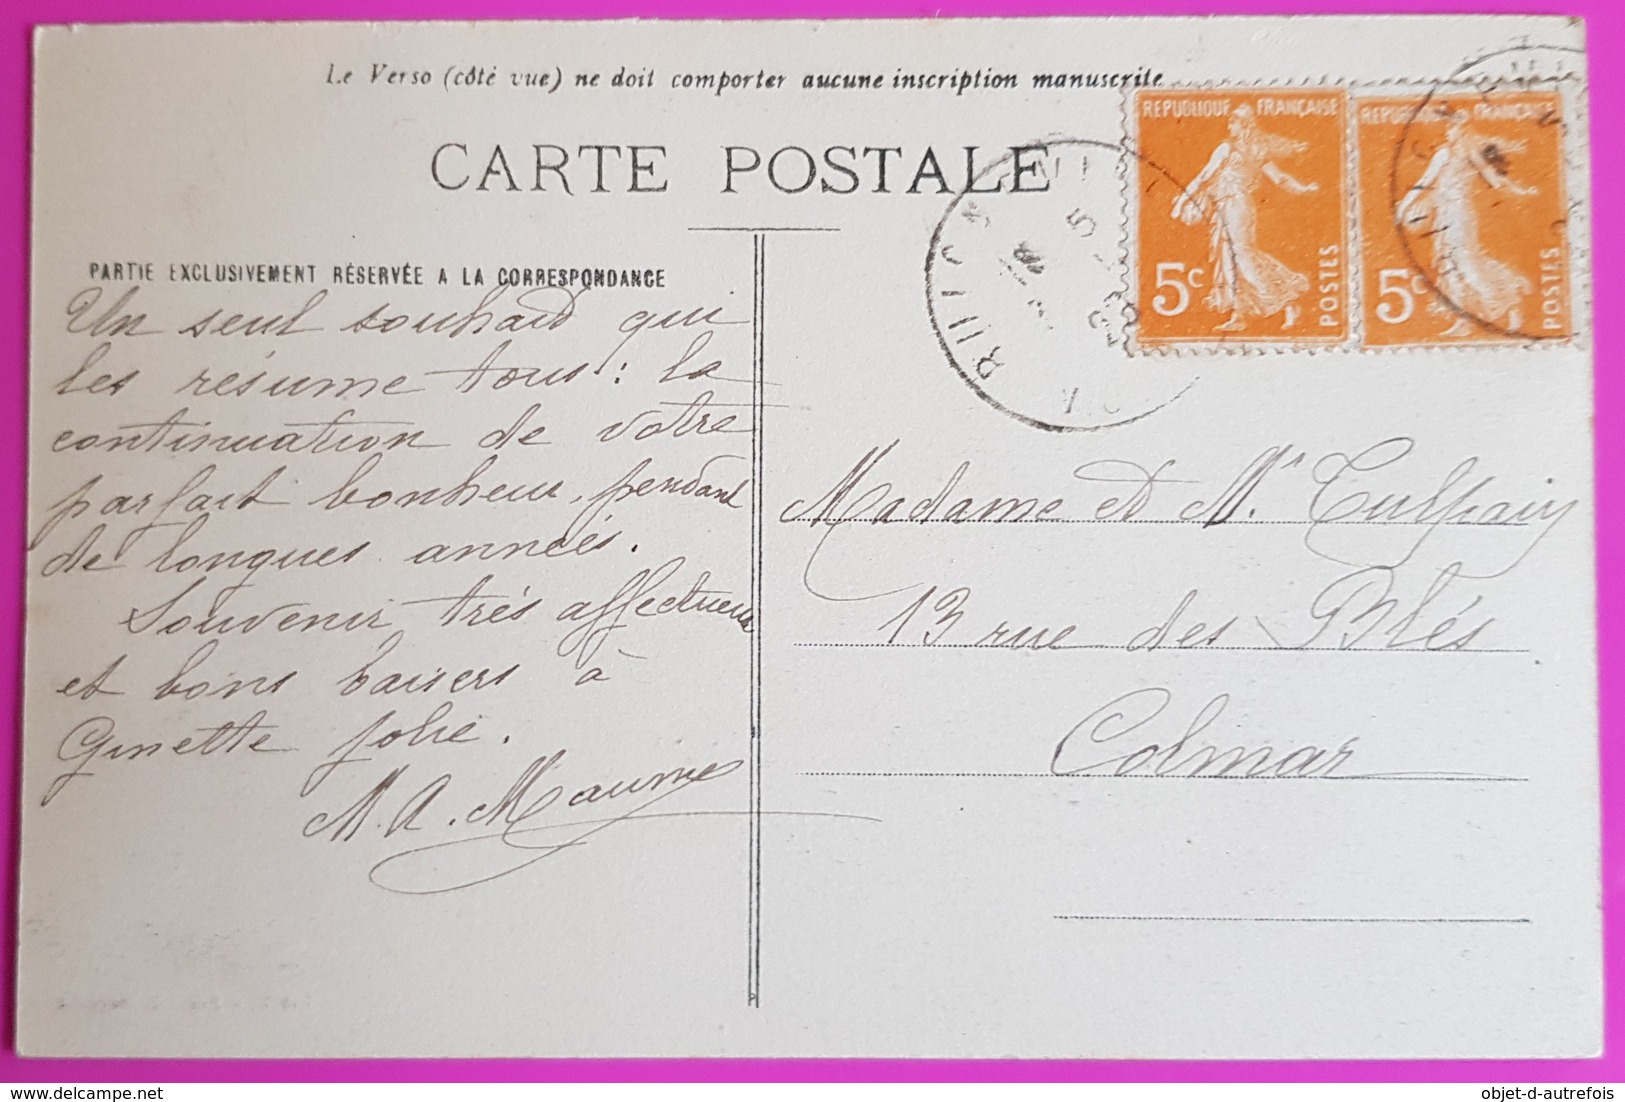 Le Verso (côté vue) ne doit comporter aucune inscription manuscrite
CARTE POSTALE
REPUBLIQUE FRANÇAISE
5c POSTES
REPUBLIQUE FRANÇAISE
5c POSTES
PARTIE EXCLUSIVEMENT RÉSERVÉE A LA CORRESPONDANCE
Un seul souhait qui
les résume tous : la
continuation de votre
parfait bonheur, pendant
de longues années.
Souvenir très affectueux
et bons baisers à
Ginette jolie.
M. A.
Madame et Mr
13 rue des Blés
Colmar
delcampe.net
objet-d-autrefois